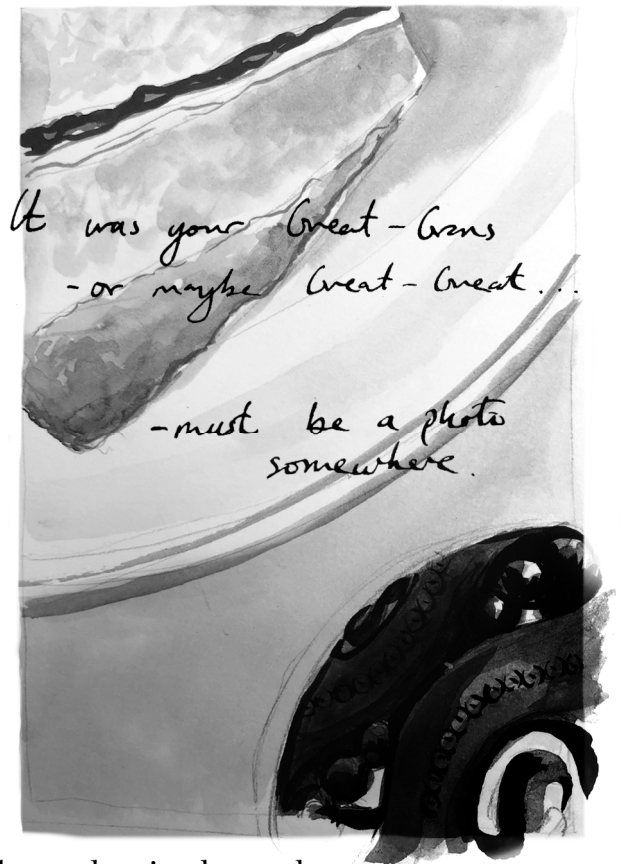 It was your Great-Grans
-or maybe Great-Great...
-must be a photo
somewhere.